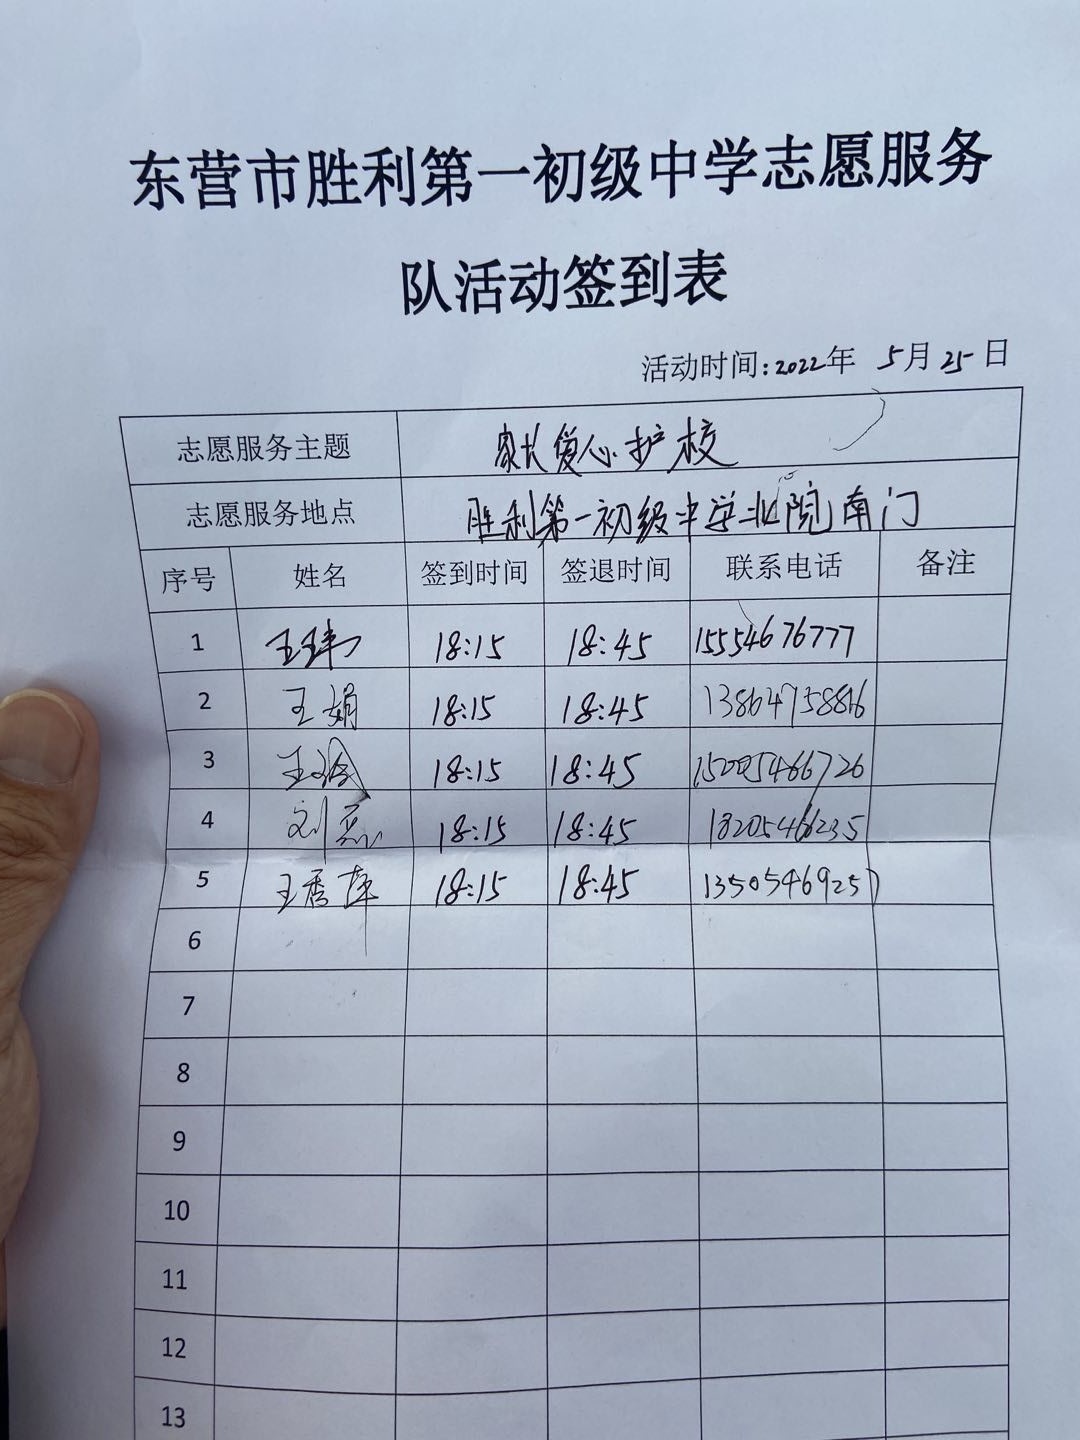 东营市胜利第一初级中学志愿服务
队活动签到表
活动时间:2022年 5月25日
志愿服务主题 家长爱心护校
志愿服务地点 胜利第一初级中学北院南门
序号 姓名 签到时间 签退时间 联系电话 备注
1 王玮 18:15 18:45 15554676777
2 王娟 18:15 18:45 13864758816
3 18:15 18:45 15005466726
4 刘磊 18:15 18:45 18205466235
5 王秀萍 18:15 18:45 13505469257
6
7
8
9
10
11
12
13